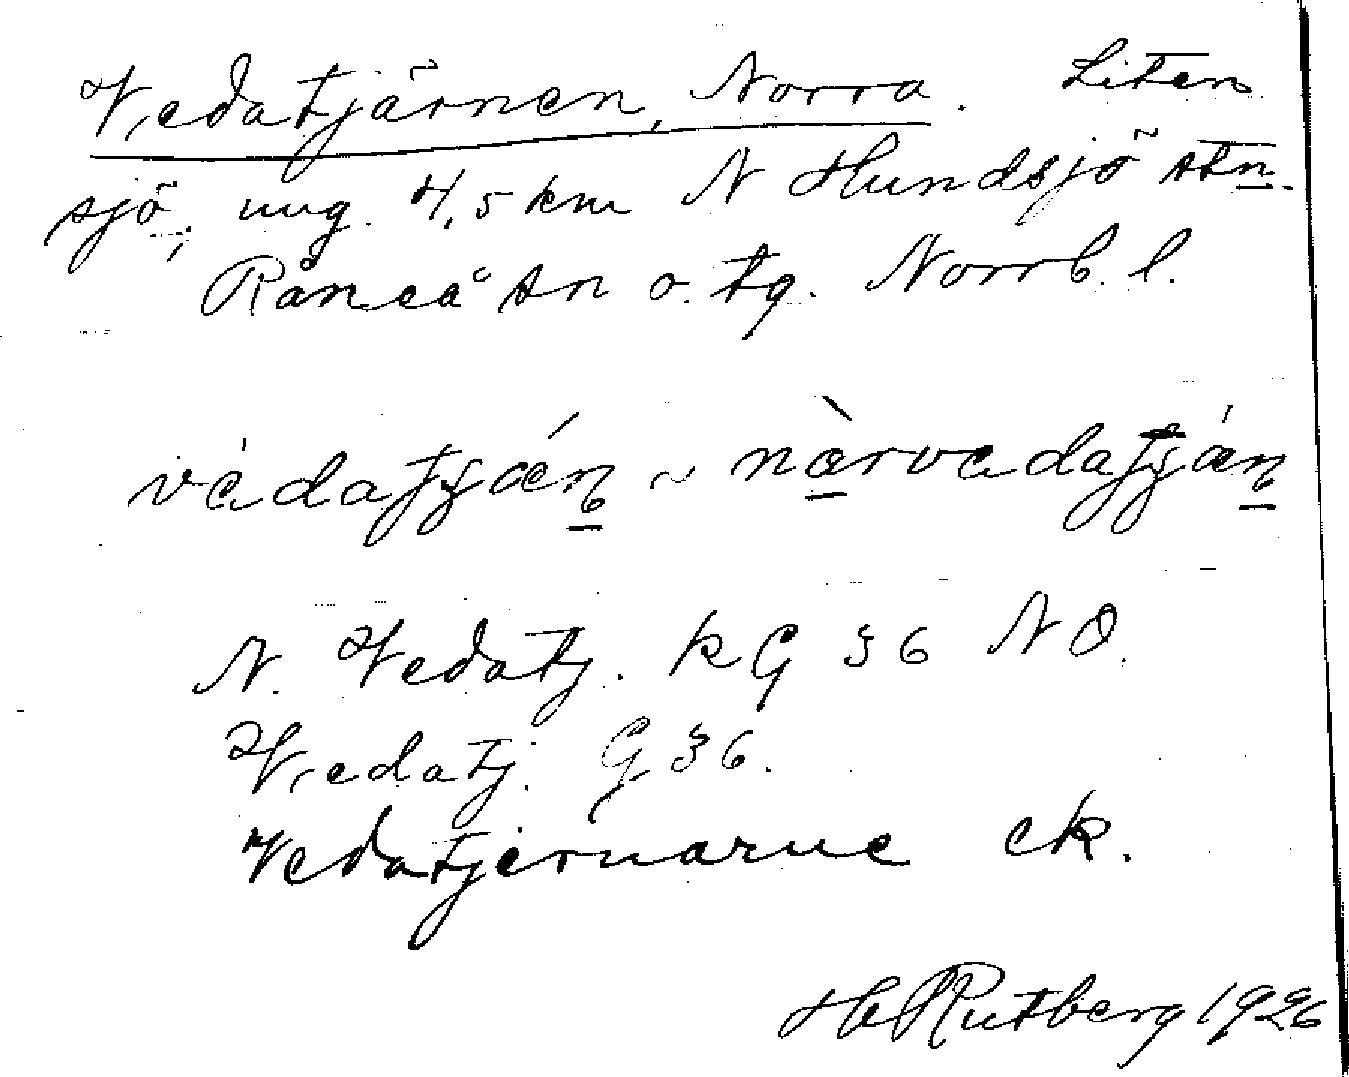 Vedatjärnen, Norra. Liten
sjö, ung. 4,5 km N Hundsjö stn.
Råneå sn o. tg. Norrb. l.
vèdatjǽn ~ nàrvedatjǽn
N. Vedatj. kG 36 NO.
Vedatj. G 36.
Vedatjernarne ek.
H Rutberg 1926